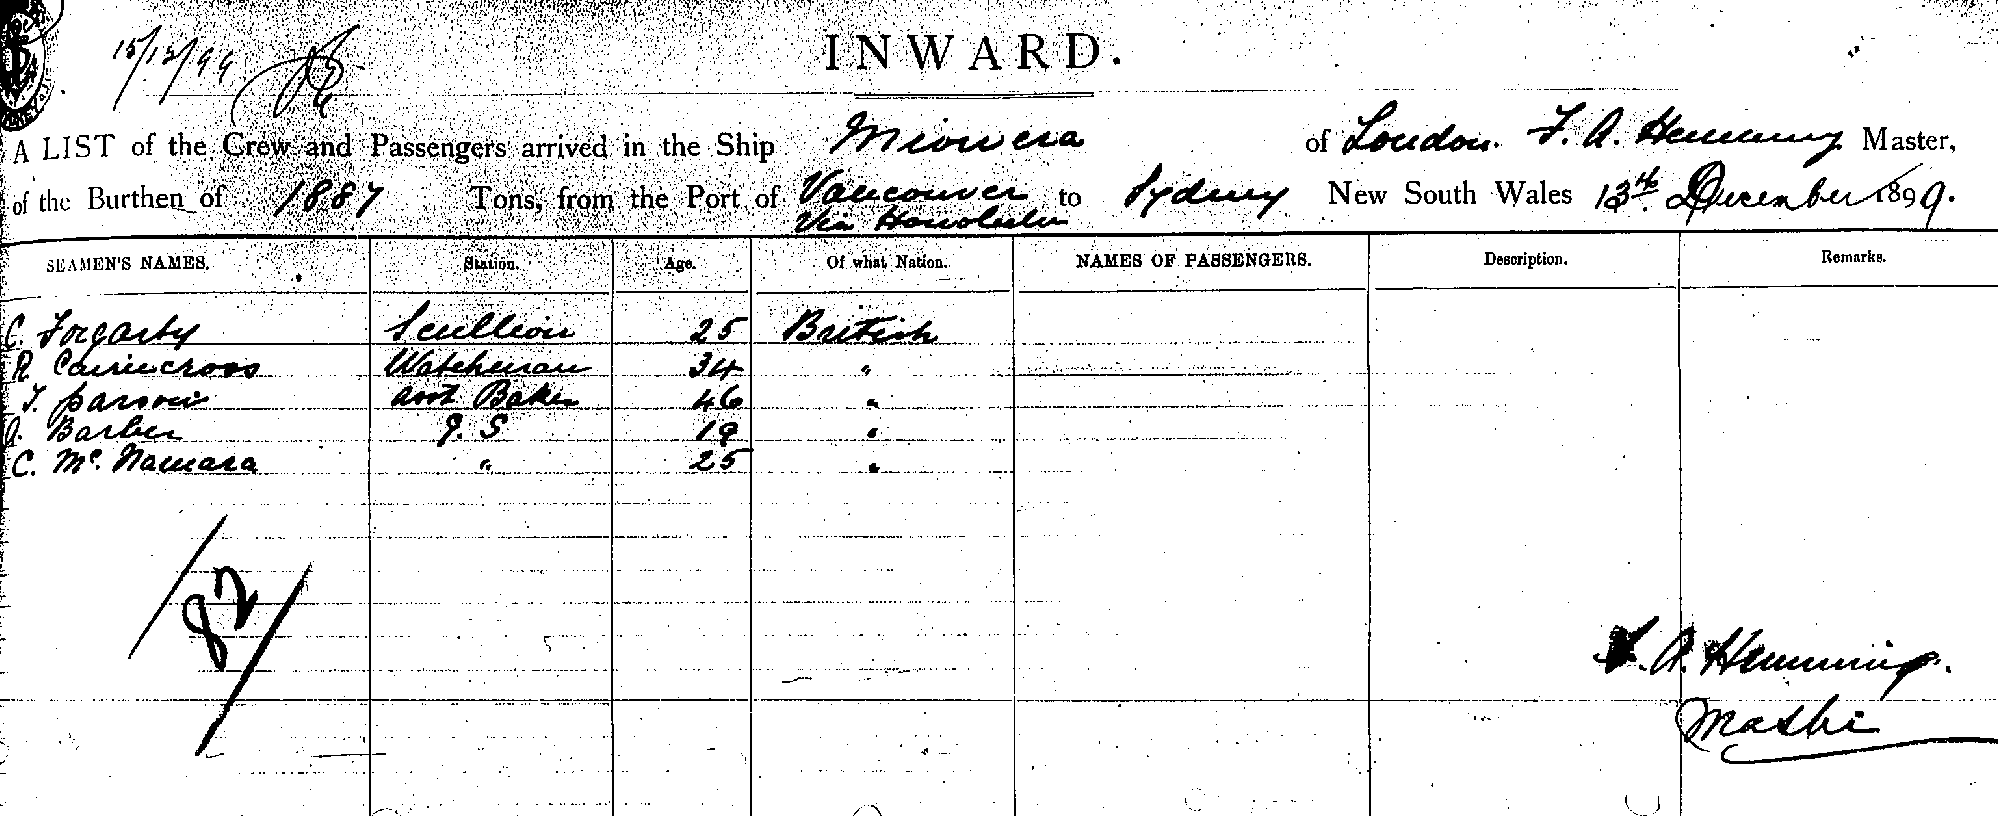 15/12/99
INWARD.
A LIST of the Crew and Passengers arrived in the Ship Miowera of London. F. A. Hemming Master,
of the Burthen of 1887 Tons, from the Port of Vancouver to Sydney New South Wales 13th December 1899.
Via Honolulu
SEAMEN'S NAMES. Station. Age. Of what Nation. NAMES OF PASSENGERS. Description. Remarks.
C. Fogarty Scullion 25 British
R Cairncross Watchman 34 "
T. Parsons Asst Baker 46 "
J. Barber G. S 19 "
C. Mc. Namara " 25 "
82
F. A. Hemming.
Master